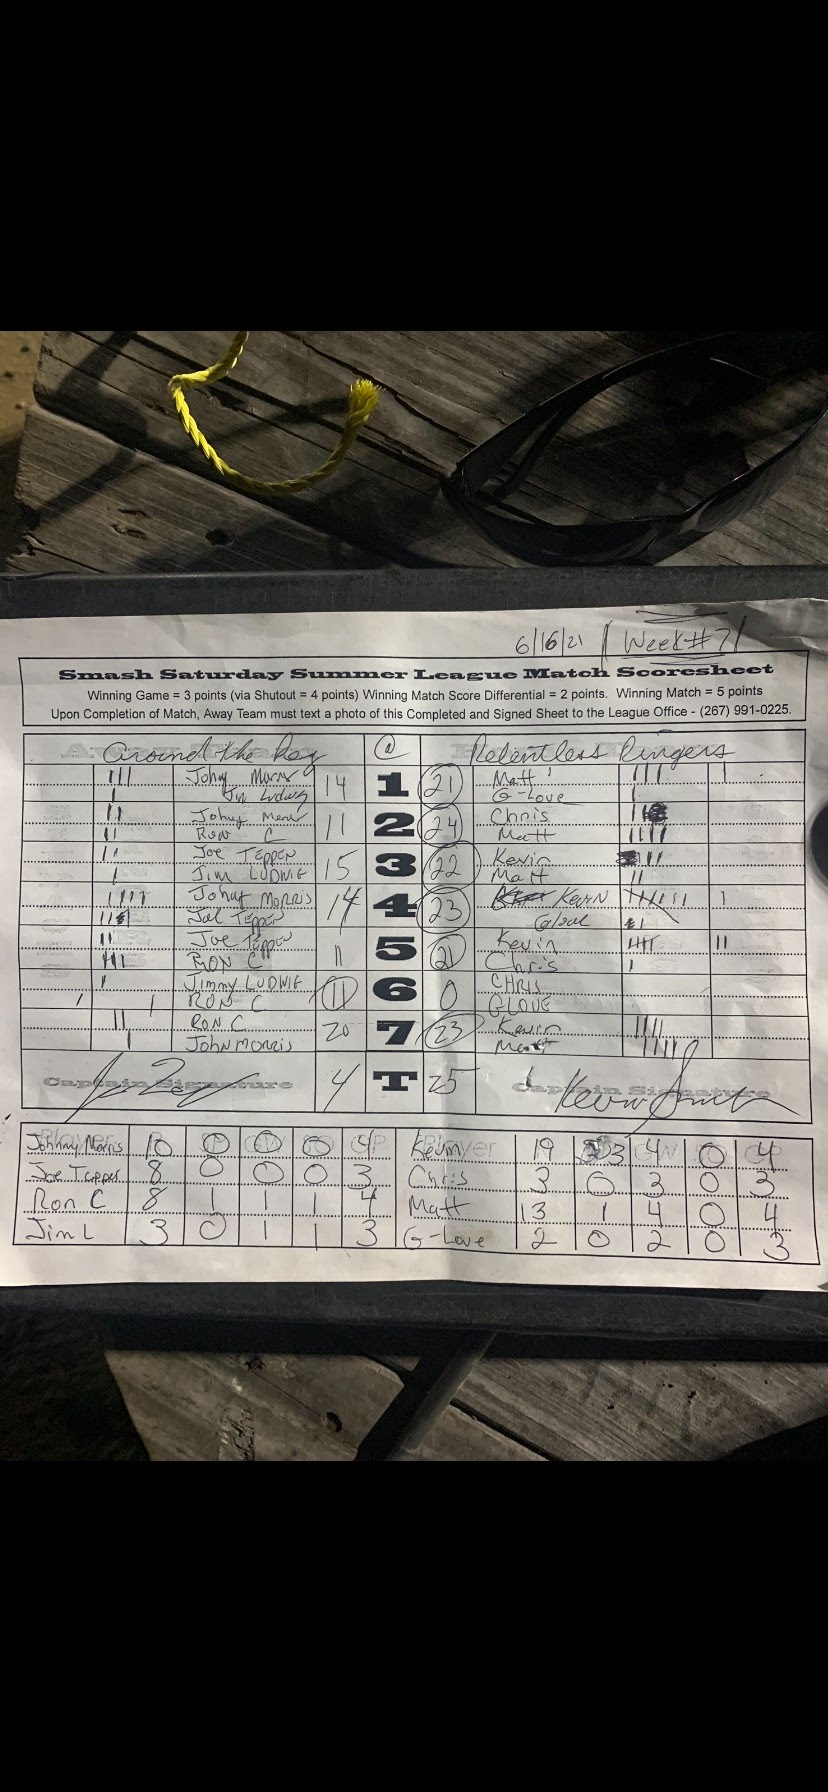 6/16/21 Week #7
Smash Saturday Summer League Match Scoresheet
Winning Game = 3 points (via Shutout = 4 points) Winning Match Score Differential = 2 points. Winning Match = 5 points
Upon Completion of Match, Away Team must text a photo of this Completed and Signed Sheet to the League Office - (267) 991-0225.
Around the Peg @ Relentless Ringers
Johny Morris 14 1 21 Matt
Jim Ludwig G-Love
Johny 11 2 24 Chris
RON C Matt
JOE TEPPER 15 3 22 Kevin
JIM LUDWIG Matt
Johny MORRIS 14 4 23 KEVIN
Joe Tepper Glove
Joe Tepper 11 5 21 Kevin
RON C Chris
Jimmy LUDWIG 11 6 0 CHRIS
RON C GLOVE
RON C 20 7 23 Kevin
JOHN MORRIS Matt
Captain Signature 4 T 25 Captain Signature
Kevin Smith
Johnny Morris 10 0 0 0 4 Kevin 19 3 4 0 4
Joe Tepper 8 0 0 0 3 Chris 3 0 3 0 3
Ron C 8 1 1 1 4 Matt 13 1 4 0 4
Jim L 3 0 1 1 3 G-Love 2 0 2 0 3